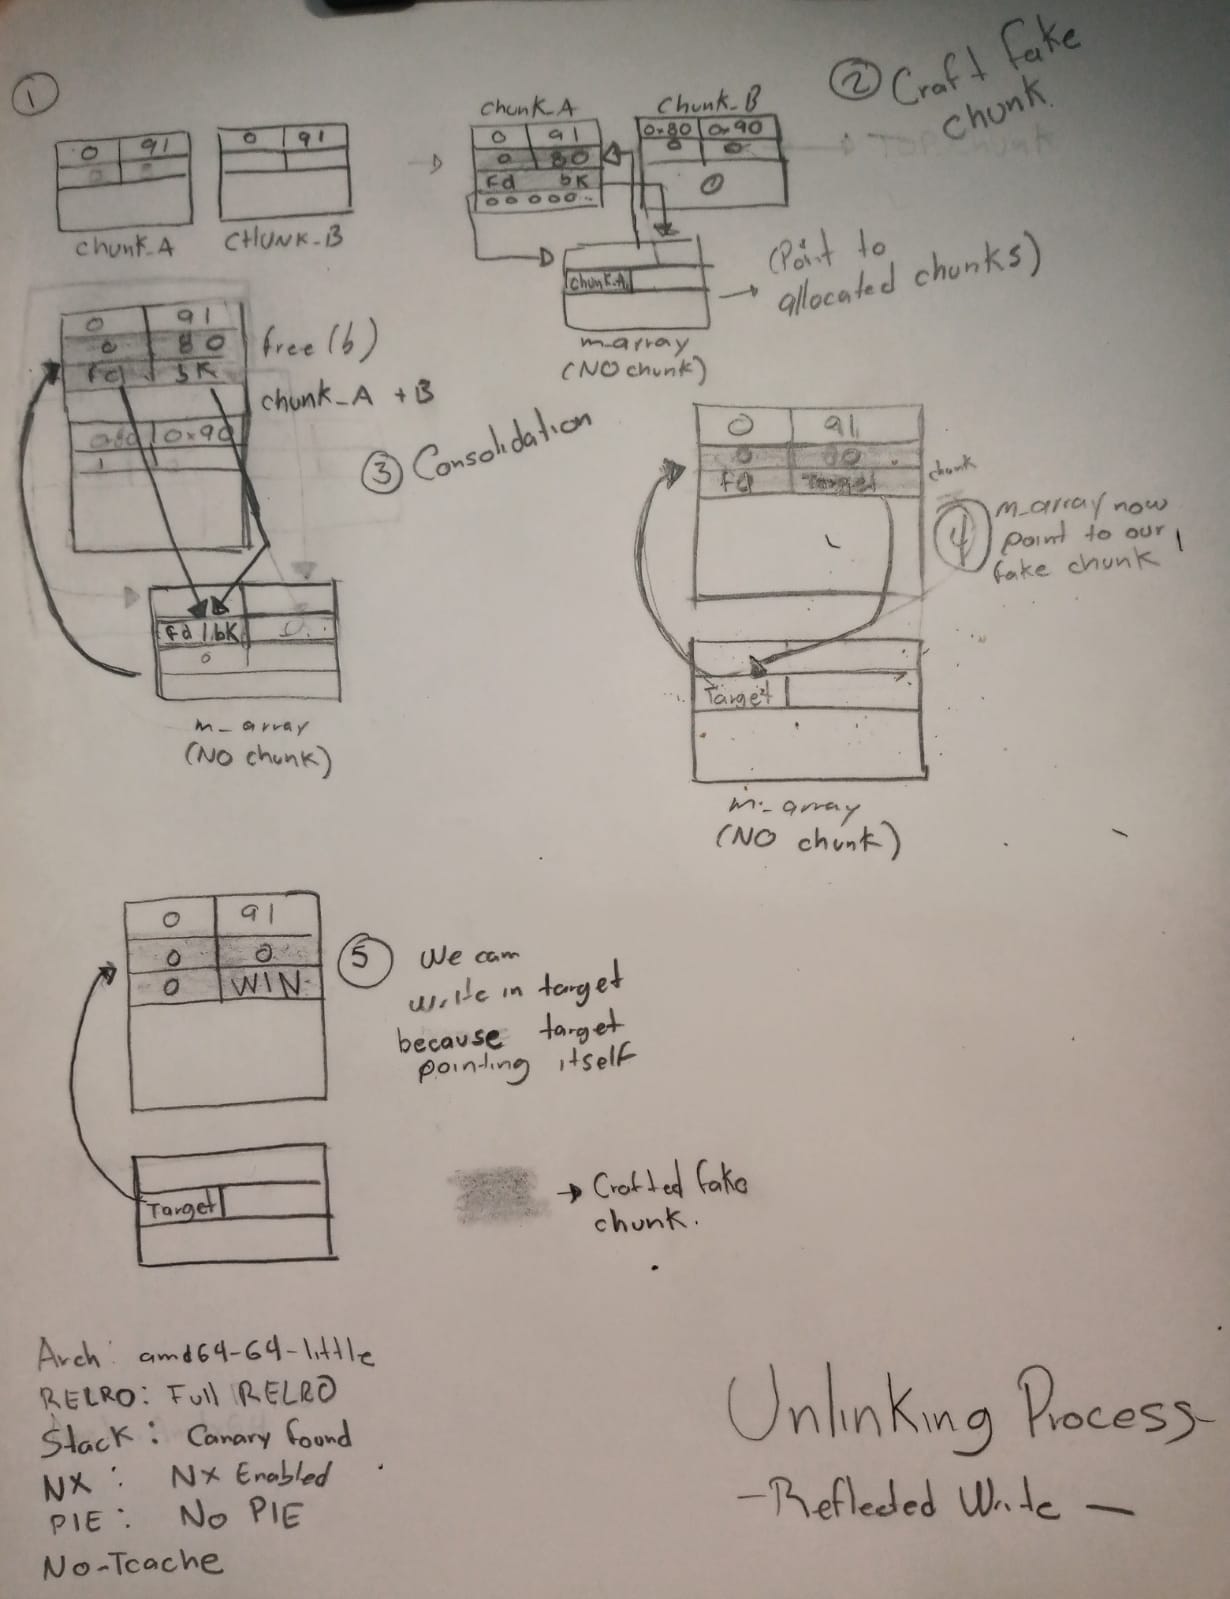 1
0 91
0 0
chunk_A
0 91
CHUNK_B
chunk_A
0 91
0 80
Fd bK
00 000..
Chunk_B
0x80 0x90
0 0
0
2 Craft fake
chunk.
Top chunk
chunk_A
m_array
(NO chunk)
(Point to
allocated chunks)
0 91
0 80
Fd bK
0x90
free(b)
chunk_A + B
3 Consolidation
fd / bK
0
m_array
(NO chunk)
0 91
0 80
Fd Target
chunk
4 m_array now
point to our
fake chunk
Target
m_array
(NO chunk)
0 91
0 0
0 WIN
5 We can
write in target
because target
pointing itself
Target
Crafted fake
chunk.
Arch: amd64-64-little
RELRO: Full RELRO
Stack: Canary found
NX: NX Enabled
PIE: No PIE
No-Tcache
Unlinking Process
- Reflected Write -